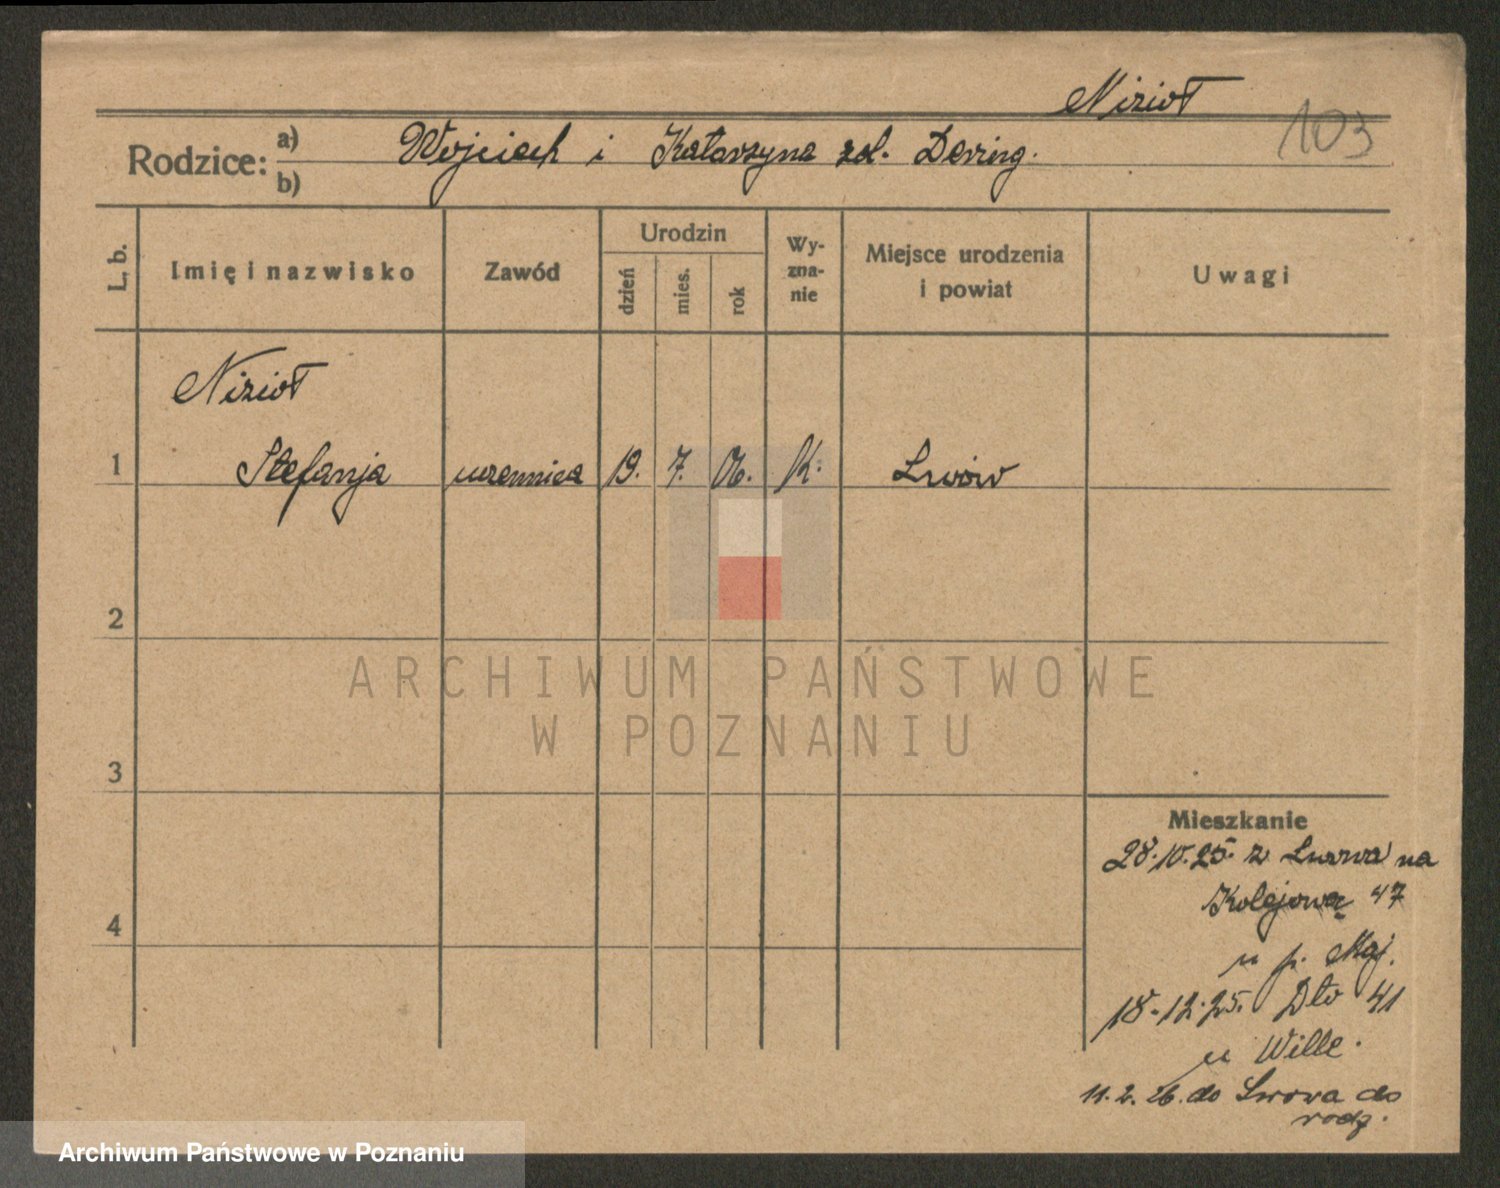 Nizioł
103
Rodzice: a) b) Wojciech i Katarzyna zol. Dering.
L. b.
Imię i nazwisko
Zawód
Urodzin
dzień
mies.
rok
Wy-
zna-
nie
Miejsce urodzenia
i powiat
Uwagi
Nizioł
1 Stefanja uczennica 19. 7. 06. K. Lwów
2
3
4
ARCHIWUM PAŃSTWOWE
W POZNANIU
Mieszkanie
28.10.25. z Lwowa na
Kolejową 47
u p. Maj.
18.12.25. Dto 41
u Wille.
11.2.26. do Lwowa do
rodz.
Archiwum Państwowe w Poznaniu